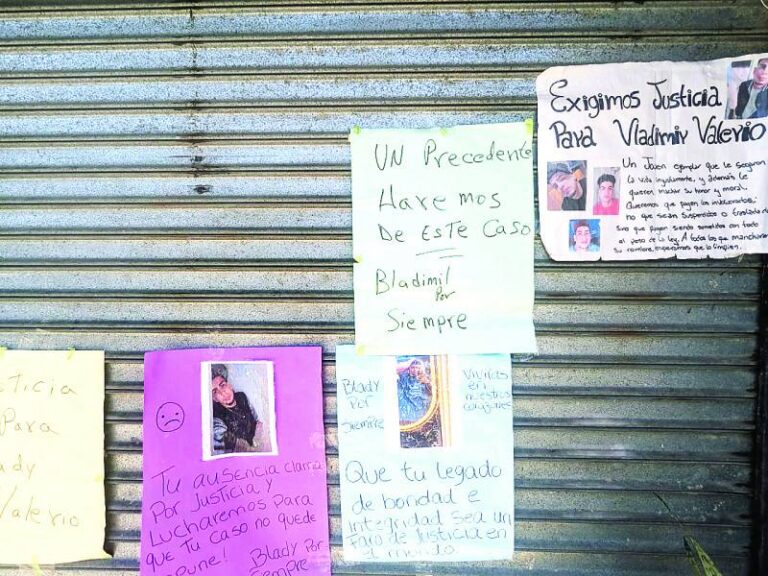 Exigimos Justicia
Para Vladimir Valerio
Un Joven ejemplar que le segaron
la vida injustamente, y además le
quieren manchar su honor y moral.
Queremos que paguen los involucrados,
no que sean suspendidos o
sino que paguen siendo sometidos con todo
el peso de la ley. A todos los que mancharon
su nombre, esperamos que lo limpien.
UN Precedente
Haremos
De Este Caso
Bladimil
Por
Siempre
sticia
Para
ady
Valerio
Tu ausencia clama
Por Justicia y
Lucharemos Para
que Tu caso no quede
pune!
Blady Por
Siempre
Blady
Por
Siempre
Vivirás
en
nuestros
corazones
Que tu legado
de bondad e
integridad sea un
Faro de Justicia en
el mundo